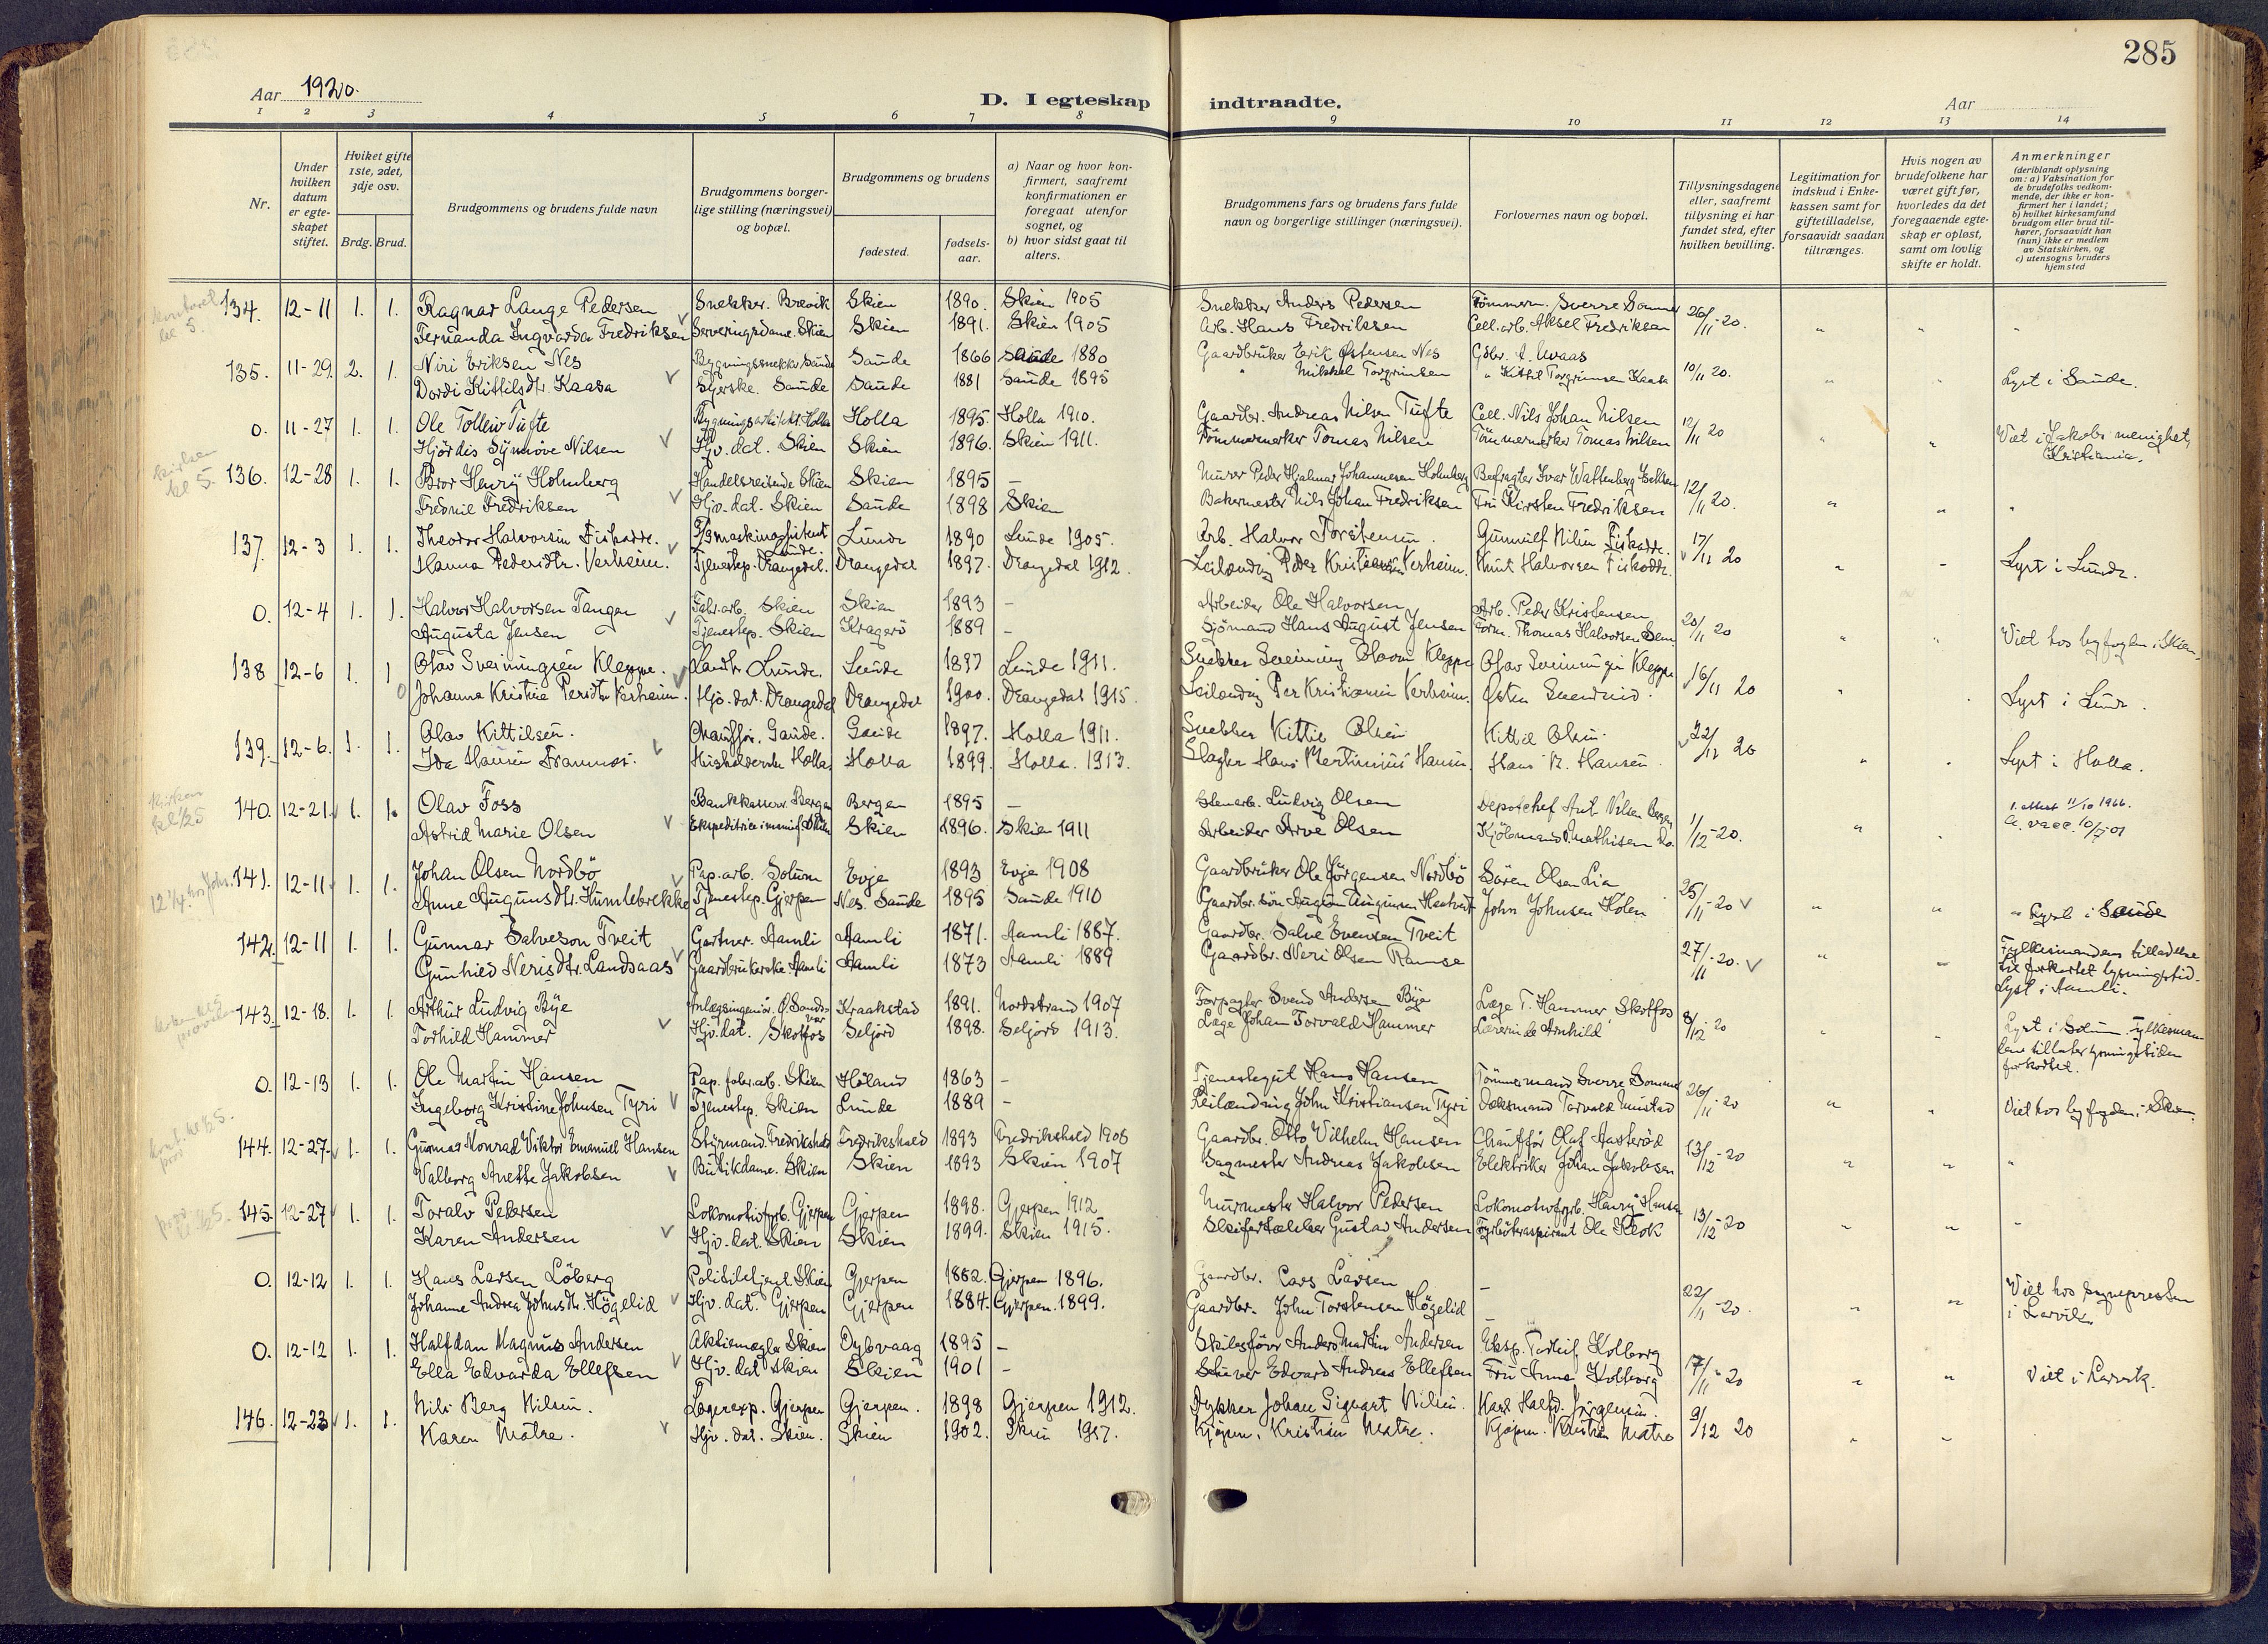 285
Aar 1920.
D. I egteskap indtraadte.
Aar
1 2 3 4 5 6 7 8 9 10 11 12 13 14
Nr.
Under hvilken datum er egteskapet stiftet.
Hviket gifte 1ste, 2det, 3dje osv.
Brdg. Brud.
Brudgommens og brudens fulde navn
Brudgommens borgerlige stilling (næringsvei) og bopæl.
Brudgommens og brudens
fødested.
fødselsaar.
a) Naar og hvor konfirmert, saafremt konfirmationen er foregaat utenfor sognet, og
b) hvor sidst gaat til alters.
Brudgommens fars og brudens fars fulde navn og borgerlige stillinger (næringsvei).
Forlovernes navn og bopæl.
Tillysningsdagene eller, saafremt tillysning ei har fundet sted, efter hvilken bevilling.
Legitimation for indskud i Enkekassen samt for giftetilladelse, forsaavidt saadan tiltrænges.
Hvis nogen av brudefolkene har været gift før, hvorledes da det foregaaende egteskap er opløst, samt om lovlig skifte er holdt.
Anmerkninger (deriblandt oplysning om: a) Vaksination for de brudefolks vedkommende, der ikke er konfirmert her i landet; b) hvilket kirkesamfund brudgom eller brud tilhører, forsaavidt han (hun) ikke er medlem av Statskirken, og c) utensogns bruders hjemsted
134. 12-11 1. 1. Ragnar Lange Pedersen Snekker. Brevik Skien 1890. Skien 1905 Snekker Anders Pedersen Tømmerm. Sverre Sommer 26/11-20.
Fernanda Ingvarda Fredriksen Serveringsdame. Skien Skien 1891. Skien 1905 Arb. Hans Fredriksen Cell.arb. Aksel Fredriksen
135. 11-29. 2. 1. Niri Eriksen Nes Bygningssnekker Saude Saude 1866 Saude 1880 Gaardbruker Erik Østensen Nes Gdbr. A. Uvaas 10/11 20.
Dordi Kittilsdtr. Kaasa Syerske. Saude Saude 1881 Saude 1895 " Mikkel Torgrimsen " Kittil Torgrimsen Kaasa Lyst i Saude.
0. 11-27 1. 1. Ole Tolleiv Tufte Bygningsarkitekt. Holla Holla 1895. Holla 1910. Gaardbr. Andreas Nilsen Tufte Cell. Nils Johan Nilsen 12/11 20
Hjørdis Synnøve Nilsen Hjv. dat. Skien Skien 1896. Skien 1911. Tømmermerker Tomas Nilsen Tømmermerker Tomas Nilsen Viet i Jakobs menighet, Kristiania.
136. 12-28 1. 1. Bror Henry Holmberg Handelsreisende Skien Skien 1895 - Murer Peder Hjalmar Johannesen Holmberg Befragter Ivar Wattenberg 12/11 20.
Fredrie Fredriksen Hjv. dat. Skien Saude 1898 Skien Bakermester Nils Johan Fredriksen Fru Kirsten Fredriksen
137. 12-3 1. 1. Theodor Halvorsen Fiskodde. Lunde. Lunde 1890 Lunde 1905. Arb. Halvor Torstensen. Gunnulf Nilsen Fiskodde. 17/11 20
Hanna Pedersdtr. Verheim. Tjenestep. Drangedal. Drangedal 1897. Drangedal 1912. Leilænding Peder Kristiansen Verheim. Knut Halvorsen Fiskodde. Lyst i Lunde.
0. 12-4 1. 1. Halvor Halvorsen Tangen Fabr.arb. Skien Skien 1893 - Arbeider Ole Halvorsen Arb. Peder Kristensen 20/11 20
Augusta Jensen Tjenestep. Skien Kragerø 1889 - Sjømand Hans August Jensen Form. Thomas Halvorsen Sem Viet hos byfogden i Skien.
138 12-6 1. 1 Olav Sveinungsen Kleppe. Landbr. Lunde. Lunde 1897 Lunde 1911. Snekker Sveinung Olavsen Kleppe Olav Sveinungsen Kleppe 16/11 20
Johanna Kristine Persdtr. Verheim. Hjv. dat. Drangedal Drangedal 1900. Drangedal 1915. Leilænding Per Kristiansen Verheim. Østen Lyst i Lunde.
139. 12-6. 1. 1. Olav Kittilsen. Chauffør. Saude. Saude 1897. Holla 1911. Snekker Kittil Olsen Kittil Olsen. 22/11 20
Ida Hansen Framnes. Husholderske Holla. Holla 1899. Holla. 1913. Slagter Hans Martinius Hansen. Hans M. Hansen. Lyst i Holla.
140. 12-21. 1. 1. Olav Foss Bankkasserer. Bergen Bergen 1895 - Stenarb. Ludvig Olsen Depotchef Ant. Nilsen Bergen 1/12-20. 1. attest 11/10 1966.
Astrid Marie Olsen Skien Skien 1896. Skien 1911 Arbeider Arve Olsen Kjøbmand Mathisen do. a. vacc. 10/7-01
141. 12-11 1. 1. Johan Olsen Nordbö Pap.arb. Solum Evje 1893 Evje 1908 Gaardbruker Ole Jörgensen Nordbö Sören Olsen Lia 25/11-20
Anne Augunsdtr. Humlebrekke Tjenestep. Gjerpen Nes. Saude 1895 Saude 1910 John Johnsen Holen Lyst i Saude
142. 12-11 1. 1. Gunnar Salveson Tveit Gartner. Aamli Aamli 1871. Aamli 1887. Gaardbr. Salve Evensen Tveit 27/11-20.
Gunhild Nerisdtr. Landsaas Gaardbrukerske Aamli Aamli 1873 Aamli 1889 Gaardbr. Neri Olsen Ramse Fylkesmandens tilladelse til forkortet lysningstid. Lyst i Aamli.
143. 12-18. 1. 1. Arthur Ludvig Bye Anlægsingeniør. Ø. Sandsvær Kraakstad 1891. Nordstrand 1907 Forpagter Svend Andersen Bye Læge T. Hammer, Skotfos 8/12-20
Torhild Hammer Hjv. dat. Skotfos Seljord 1898. Seljord 1913. Læge Johan Torvald Hammer Lærerinde Arnhild Lyst i Solum. Fylkesmandens tillatelse lysningstiden forkortet.
0. 12-13 1. 1. Ole Martin Hansen Pap. fabr.arb. Skien Høland 1863 - Tjenestegut Hans Hansen Tømmermand Sverre Sommer 26/11-20
Ingeborg Kristine Johnsen Tyri Tjenestep. Skien Lunde 1889 - Leilænding John Kristiansen Tyri Torvald Mustad Viet hos byfogden i Skien.
144. 12-27. 1. 1. Gunnar Monrad Viktor Emanuel Hansen Styrmand. Fredrikshald Fredrikshald 1893 Fredrikshald 1908 Gaardbr. Otto Vilhelm Hansen Chauffør Olaf Aasterød 13/12-20
Valborg Anette Jakobsen Butikdame. Skien Skien 1893 Skien 1907 Sagmester Andreas Jakobsen Elektriker Johan Jakobsen
145. 12-27 1. 1. Toralv Pedersen Lokomotivfyrb. Gjerpen Gjerpen 1898. Gjerpen 1912 Murmester Halvor Pedersen Lokomotivfyrb. Henry Hansen 13/12-20
Karen Andersen Hjv. dat. Skien Skien 1899. Skien 1915. Gustav Andersen Fyrbøteraspirant Ole Klok
0. 12-12 1. 1. Hans Larsen Löberg Politibetjent Skien Gjerpen 1882. Gjerpen 1896. Gaardbr. Lars Larsen - 22/11-20.
Johanne Andrea Johnsdtr. Högelid Hjv. dat. Gjerpen Gjerpen 1884. Gjerpen. 1899. Gaardbr. John Torstensen Högelid - Viet hos sogneprесten i Larvik.
0. 12-12 1. 1. Halfdan Magnus Andersen Aktiemægler Skien Dybvaag 1895 - Skibsfører Anders Martin Andersen Eksp. Torleif Kolberg 17/11-20
Ella Edvarda Ellefsen Hjv. dat Skien Skien 1901 - Stuver Edvard Andreas Ellefsen Fru Anna Kolberg Viet i Larvik.
146. 12-23 1. 1. Nils Berg Nilsen. Lagerexp. Gjerpen Gjerpen. 1898 Gjerpen 1912. Dykker Johan Sigvart Nilsen. Karl Halfd. Jørgensen. 9/12 20
Karen Matre. Hjv. dat. Skien. Skien 1902. Skien 1917. Kjøpm. Kristian Matre. Kjøpm. Kristian Matre